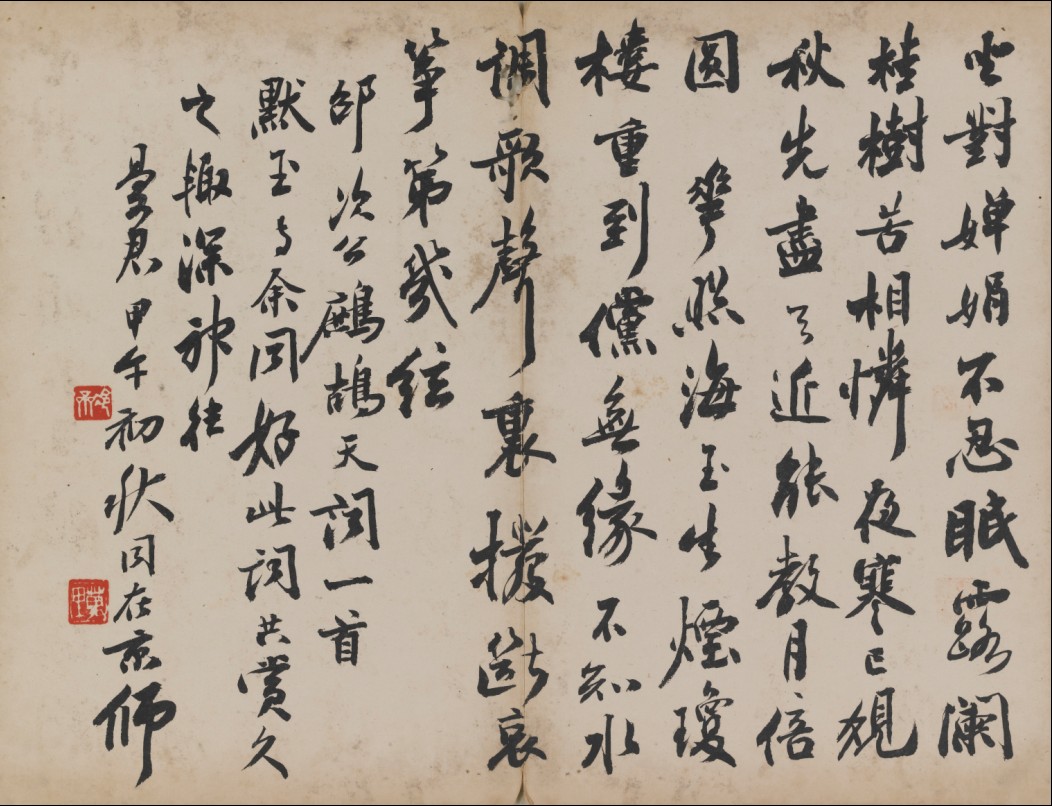 坐對嬋娟不忍眠露瀾
桂樹苦相憐夜寒已
秋先盡天近能教月倍
圓 華照海玉生煙瓊
樓重到儻無緣 不知水
調歌聲裏撥斷哀
箏第幾絃
邵次公鷓鴣天詞一首
默玉與余同好此詞共賞久
之輒深神往
君甲午初秋同在京師